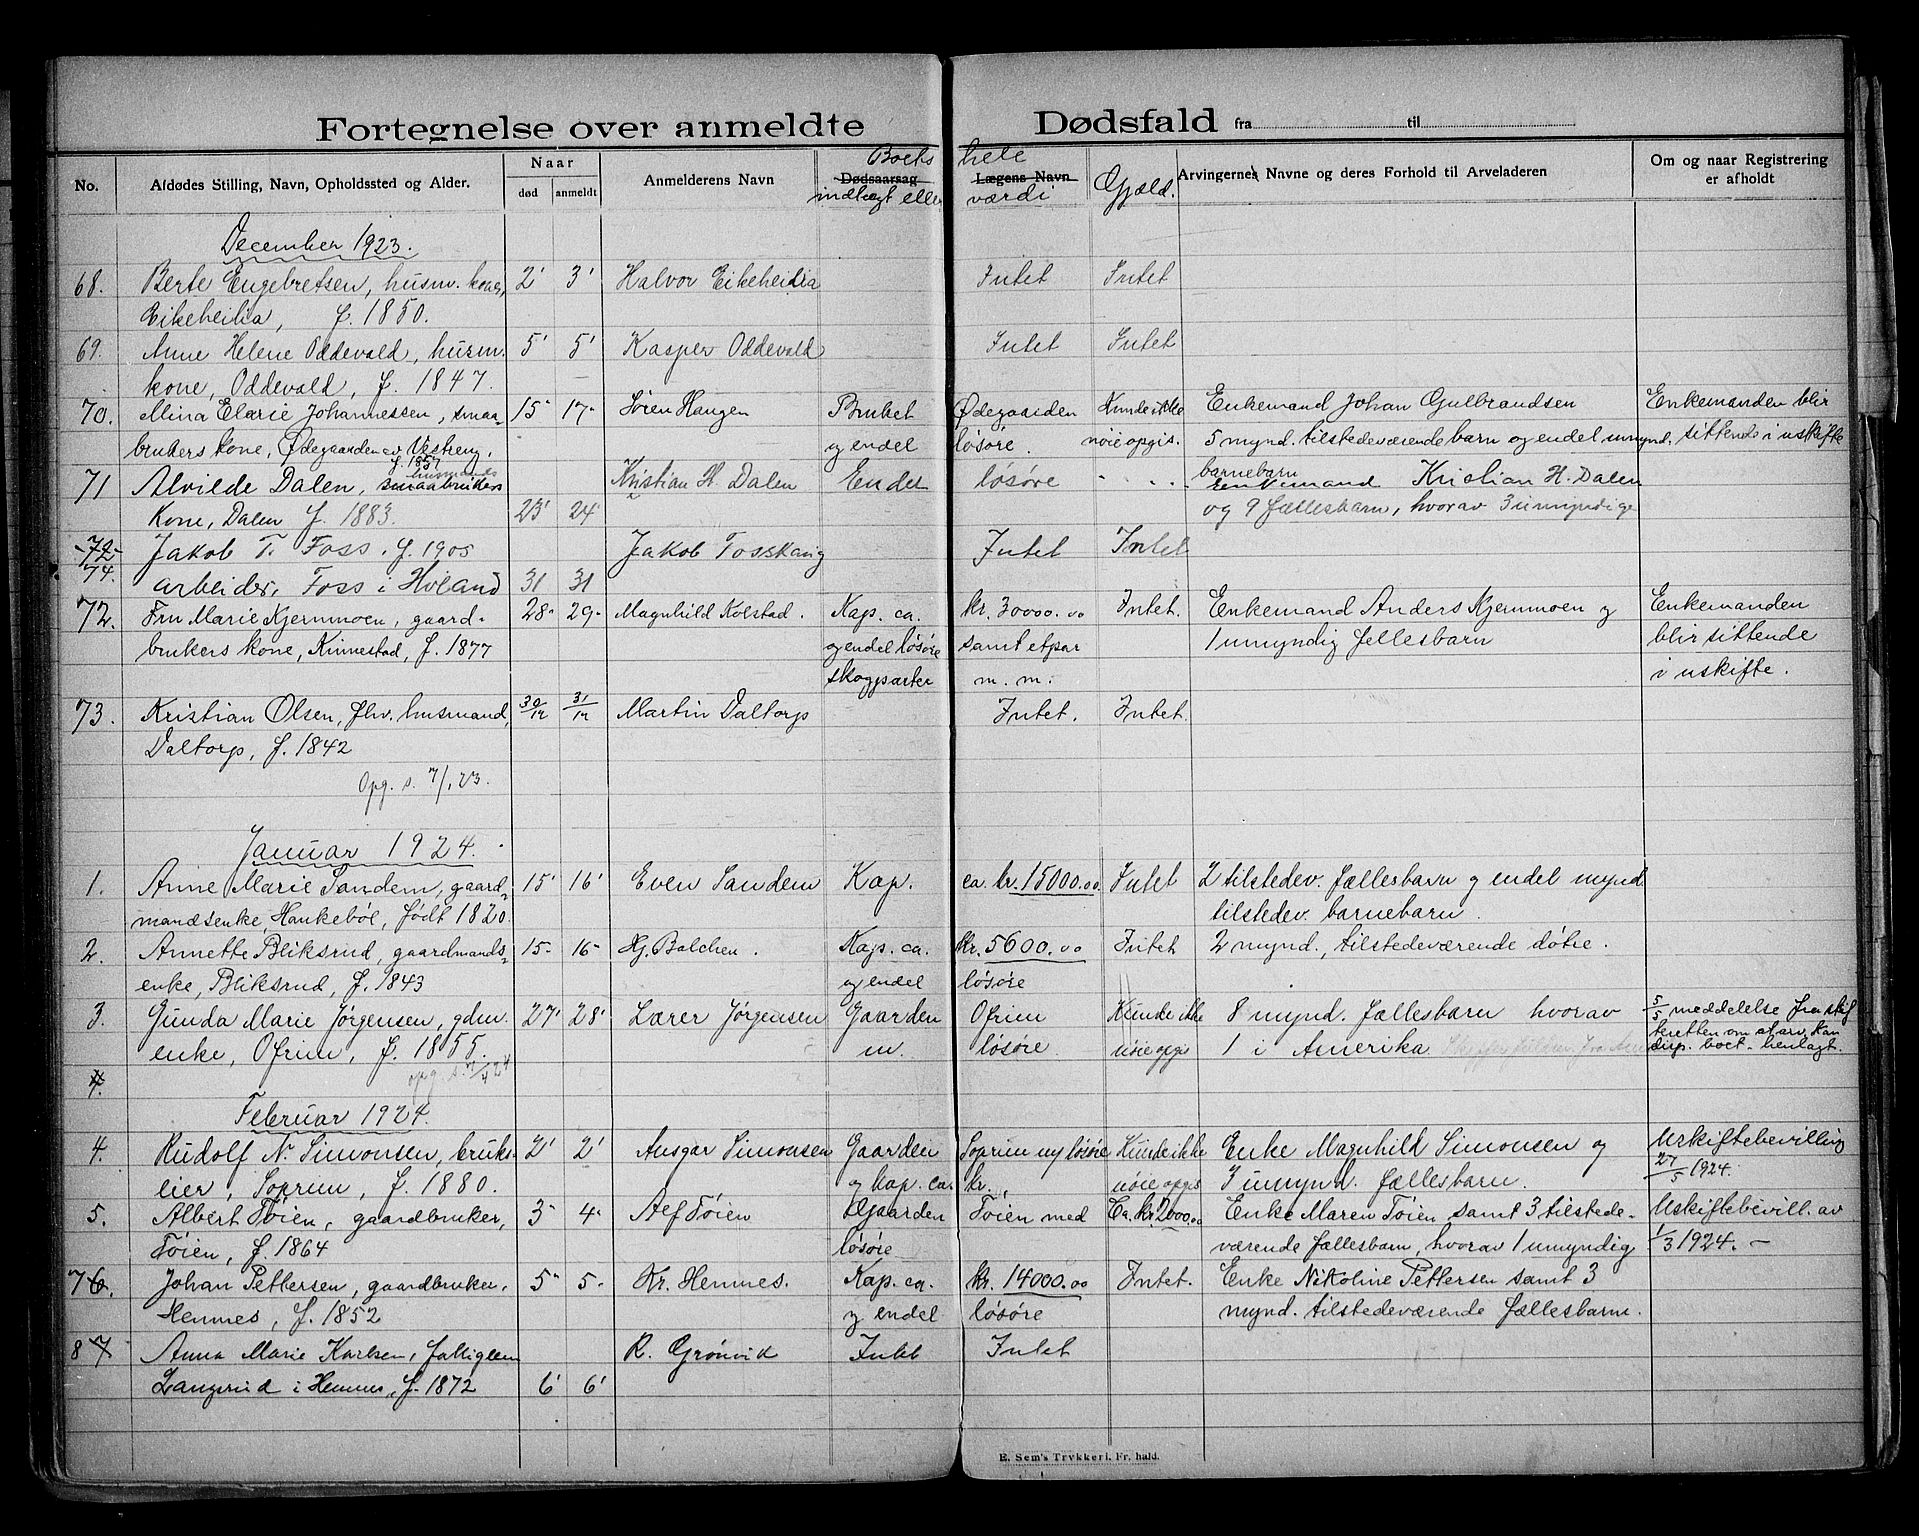 Fortegnelse over anmeldte Dødsfald fra til
No. Afdødes Stilling, Navn, Opholdssted og Alder. Naar død anmeldt Anmelderens Navn Dødsaarsag Lægens Navn Arvingernes Navne og deres Forhold til Arveladeren Om og naar Registrering er afholdt
Boets hele
indtægt eller værdi Gjæld.
December 1923.
68. Berte Engebretsen, husm. kone, 2' 3' Halvor Eikeheilia Intet Intet
Eikeheilia, f. 1850.
69. Anne Helene Oddevald, husm. 5' 5' Kasper Oddevald Intet Intet
kone, Oddevald, f. 1847.
70. Mina Elarie Johannessen, smaa- 15- 17- Søren Haugen Bruket Ødegaarden Kunde ikke Enkemand Johan Gulbrandsen Enkemanden blir
brukers kone, Ødegaarden av Vestreng, og endel løsøre. nøie opgis. 5 mynd. tilstedeværende barn og endel umynd. sittende i uskifte
f. 1857 husmands barnebarn
71 Alvilde Dalen, smaabrukers Kristian H. Dalen Endel løsøre " " " Enkemand Kristian H. Dalen
Kone, Dalen f. 1883. 23' 24' og 9 fællesbarn, hvorav 3 umyndige
-72- Jakob T. Foss. f. 1905 Jakob Fosskaug Intet Intet
74. arbeider, Foss i Høland 31 31
72. Fru Marie Kjernmoen, gaard- 28- 29- Magnhild Kolstad. Kap. ca. kr. 30000.00 Intet. Enkemand Anders Kjernmoen og Enkemanden
brukers kone, Kinnestad, f. 1877 og endel løsøre samt et par 1 umyndig fællesbarn blir sittende
skogparter m. m. i uskifte.
73. Kristian Olsen, fhv. husmand, 30/12 31/12 Martin Daltorp Intet. Intet.
Daltorp, f. 1842
Opg. s. 7/1 23.
Januar 1924.
1. Anne Marie Sandem, gaard- 15' 16' Even Sandem Kap. ca. kr. 15000.00 Intet 2 tilstedev. fællesbarn og endel mynd.
mandsenke, Hankebøl, født 1820. tilstedev. barnebarn.
2. Annette Bliksrud, gaardmands- 15- 16- Hj. Balchen. Kap. ca. kr. 5600.00 Intet 2 mynd., tilstedeværende døtre.
enke, Bliksrud, f. 1843 og endel løsøre
3. Gunda Marie Jørgensen, gdm. 27' 28' Lærer Jørgensen Gaarden Ofrim Kunde ikke 8 mynd. fællesbarn hvorav 5/5 meddelelse fra skif
enke, Ofrim, f. 1855. m. løsøre. nøie opgis 1 i Amerika teretten om at arv. kan
disp. boet - henlagt.
opg. s. 7/4 24
4.
Februar 1924.
4. Rudolf N. Simonsen, bruks- 2' 2' Ansgar Simonsen Gaarden Soprim m/ løsøre Kunde ikke Enke Magnhild Simonsen og Uskiftebevilling
eier, Soprim, f. 1880. og kap. ca. kr. nøie opgis 3 umynd. fællesbarn. 27/5 1924.
5. Albert Tøien, gaardbruker, 3- 4- Alf Tøien Gaarden Tøien med Ca. kr. 2000.00 Enke Maren Tøien samt 3 tilstede- Uskiftebevill. av
Tøien, f. 1864 løsøre værende fællesbarn, hvorav 1 umyndig 1/3 1924. -
76. Johan Pettersen, gaardbruker, 5- 5- Kr. Hemnes. Kap. ca. kr. 14000.00 Intet. Enke Nikoline Pettersen samt 3
Hemnes, f. 1852 og endel løsøre mynd. tilstedeværende fællesbarn.
8 7 Anna Marie Karlsen, fattiglem R. Grønvik Intet Intet
Langsrud i Hemnes, f. 1872 6' 6'
E. Sem's Trykkeri, Fr.hald.